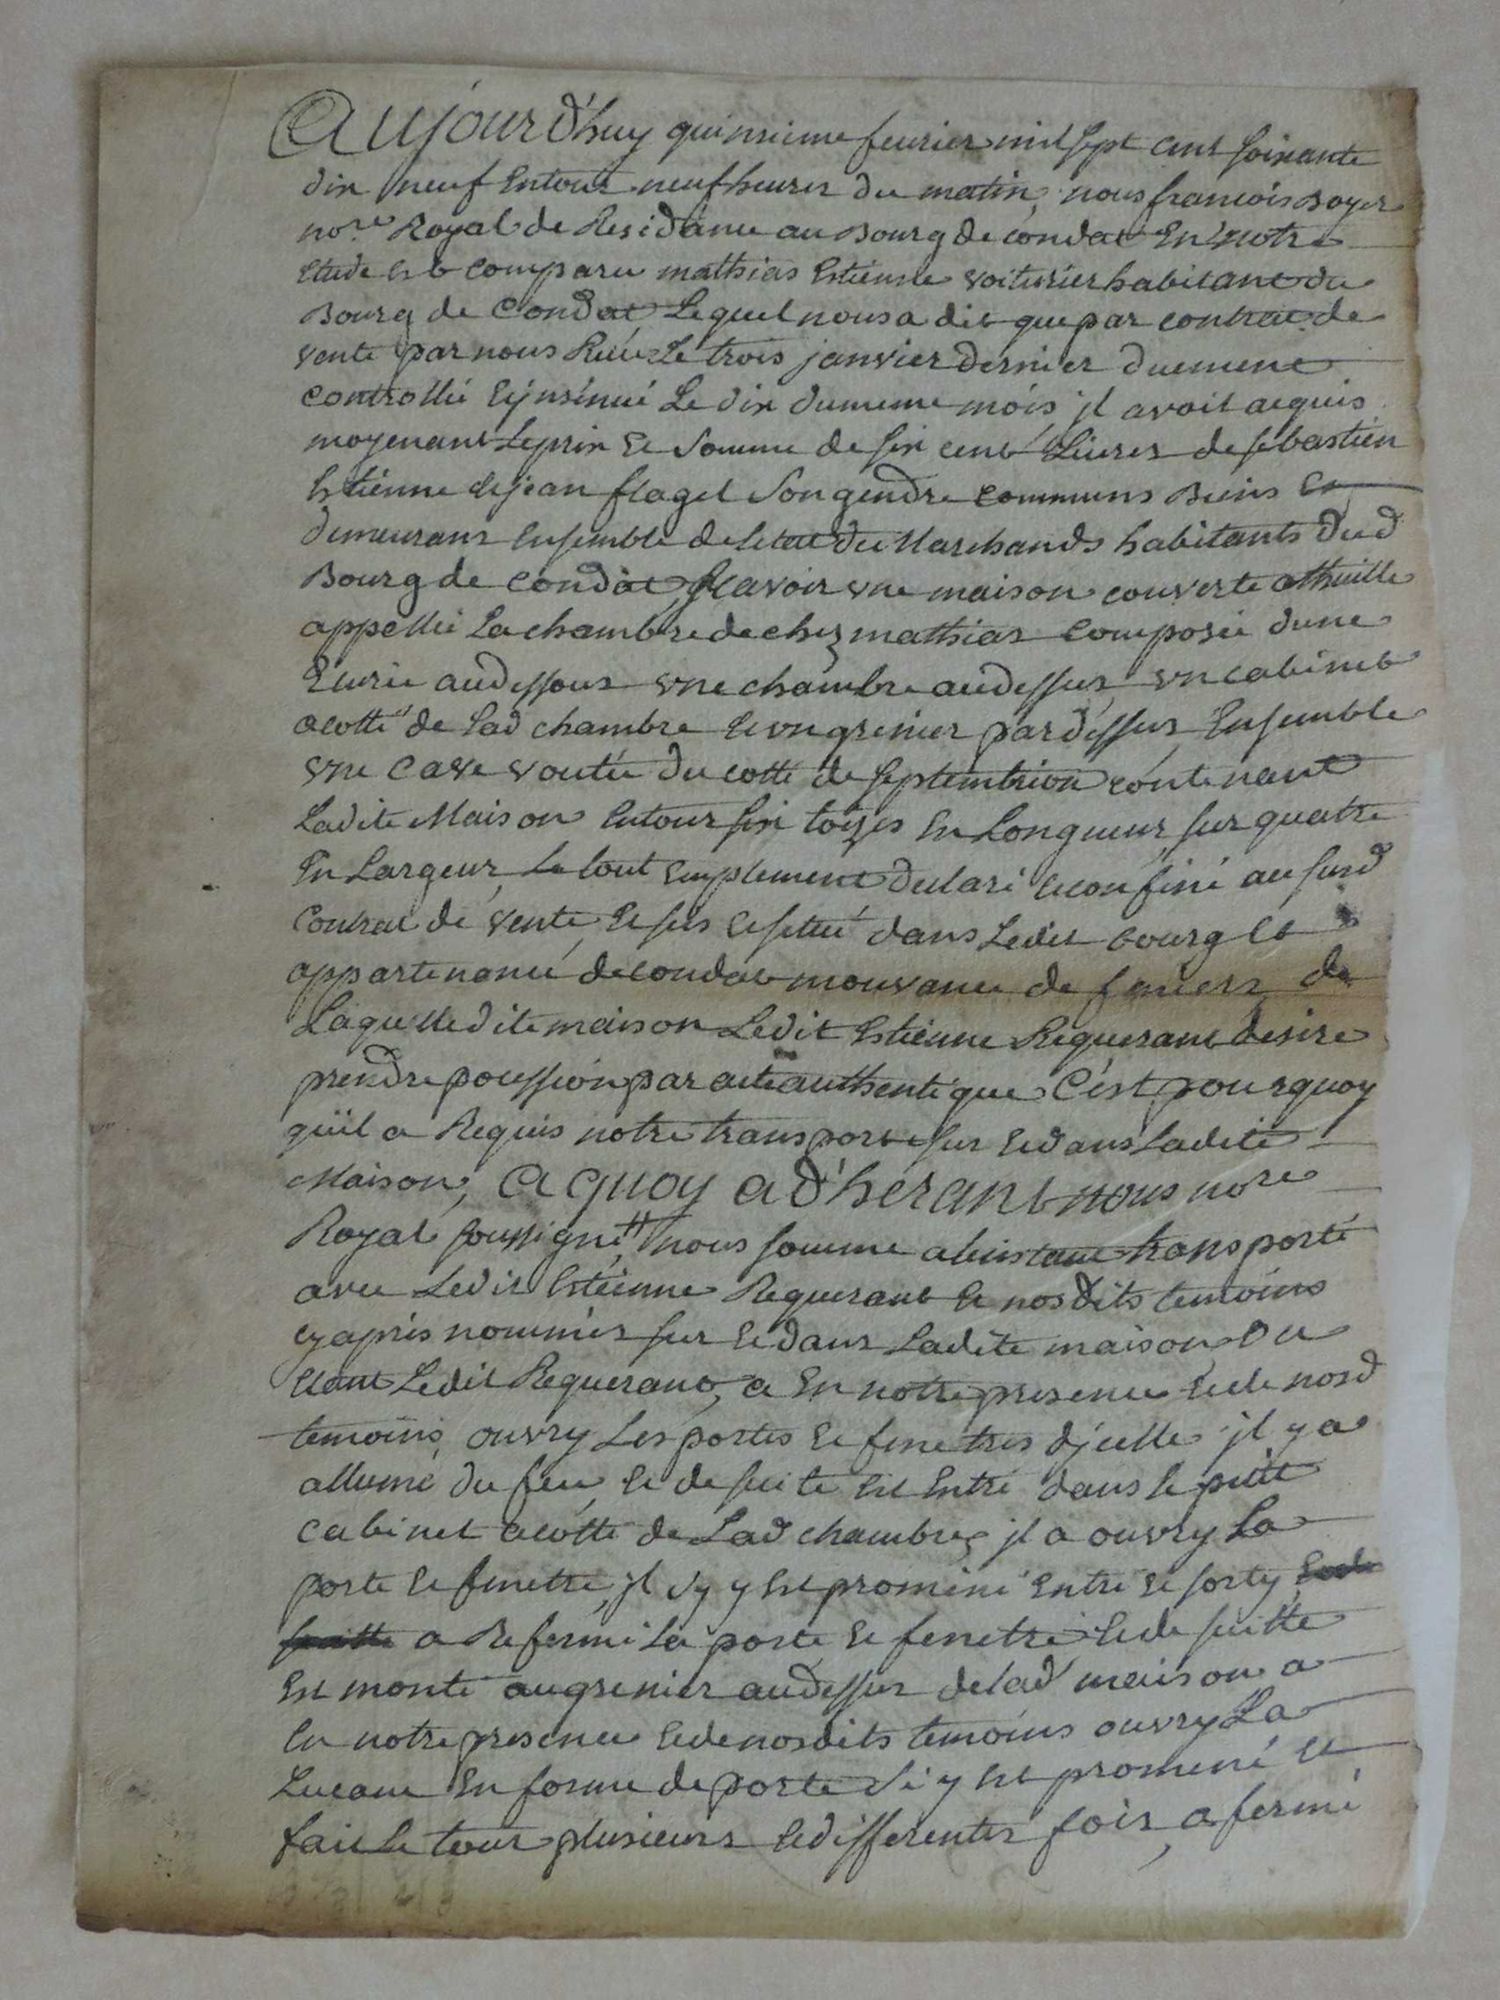 Aujourd'huy quinsieme feurier mil sept cent soixante
dix neuf entour neuf heures du matin, nous francois Boyer
nore Royal de Residance au Bourg de condat En notre
etude est comparu mathias Estienne voiturier habitant du
Bourg de Condat Lequel nous a dit que par contrat de
vente par nous Reçu Le trois janvier dernier duement
controllé et jnsinué Le dix du meme mois, jl avoit acquis
moyenant Le prix et Somme de six cent Livres de sebastien
Estienne et jean flagel Son gendre communs Biens et
demeurans ensemble de letat de Marchands habitants dud
Bourg de Condat, Scavoir vne maison couverte a thuille
appellée La chambre de chez mathias composée dune
Ecurie audessous vne chambre audessus, vn cabinet
a cotté de Lad chambre et vn grenier par dessus, Ensemble
vne Cave voutée du cotté de septembrion contenant
Ladite Maison entour six toizes en Longueur sur quatre
En Largeur, Le tout emplement declaré et confiné au susd
Contrat de vente, et sis et scitué dans Ledit bourg et
appartenance de condat mouvance de feniers, de
Laquelle dite maison Ledit Estienne Requerant desire
prendre pocession par acte authentique C'est pourquoy
quil a Requis notre transport sur et dans Ladite
Maison, A quoy adhérant nous nore
Royal soussigné, nous somme a linstant transporté
avec Ledit Estienne Requerant et nosdits temoins
cy apres nommés sur et dans Ladite maison, ou
etant Ledit Requerant, a En notre presence et de nosd
temoins, ouvry Les portes et fenetres djcelle jl y a
allumé du feu, et de suite est Entré dans le petit
cabinet a cotté de Lad chambre, jl a ouvry La
porte et fenetre, jl s'y y est promené entré et sorty,
a Refermé La porte et fenetre et de suitte
Est monté au grenier audessus de lad maison a
En notre presence et de nosdits temoins ouvry La
Lucane En forme de porte s'i y est promené et
fait Le tour plusieurs et differentes fois, a fermé